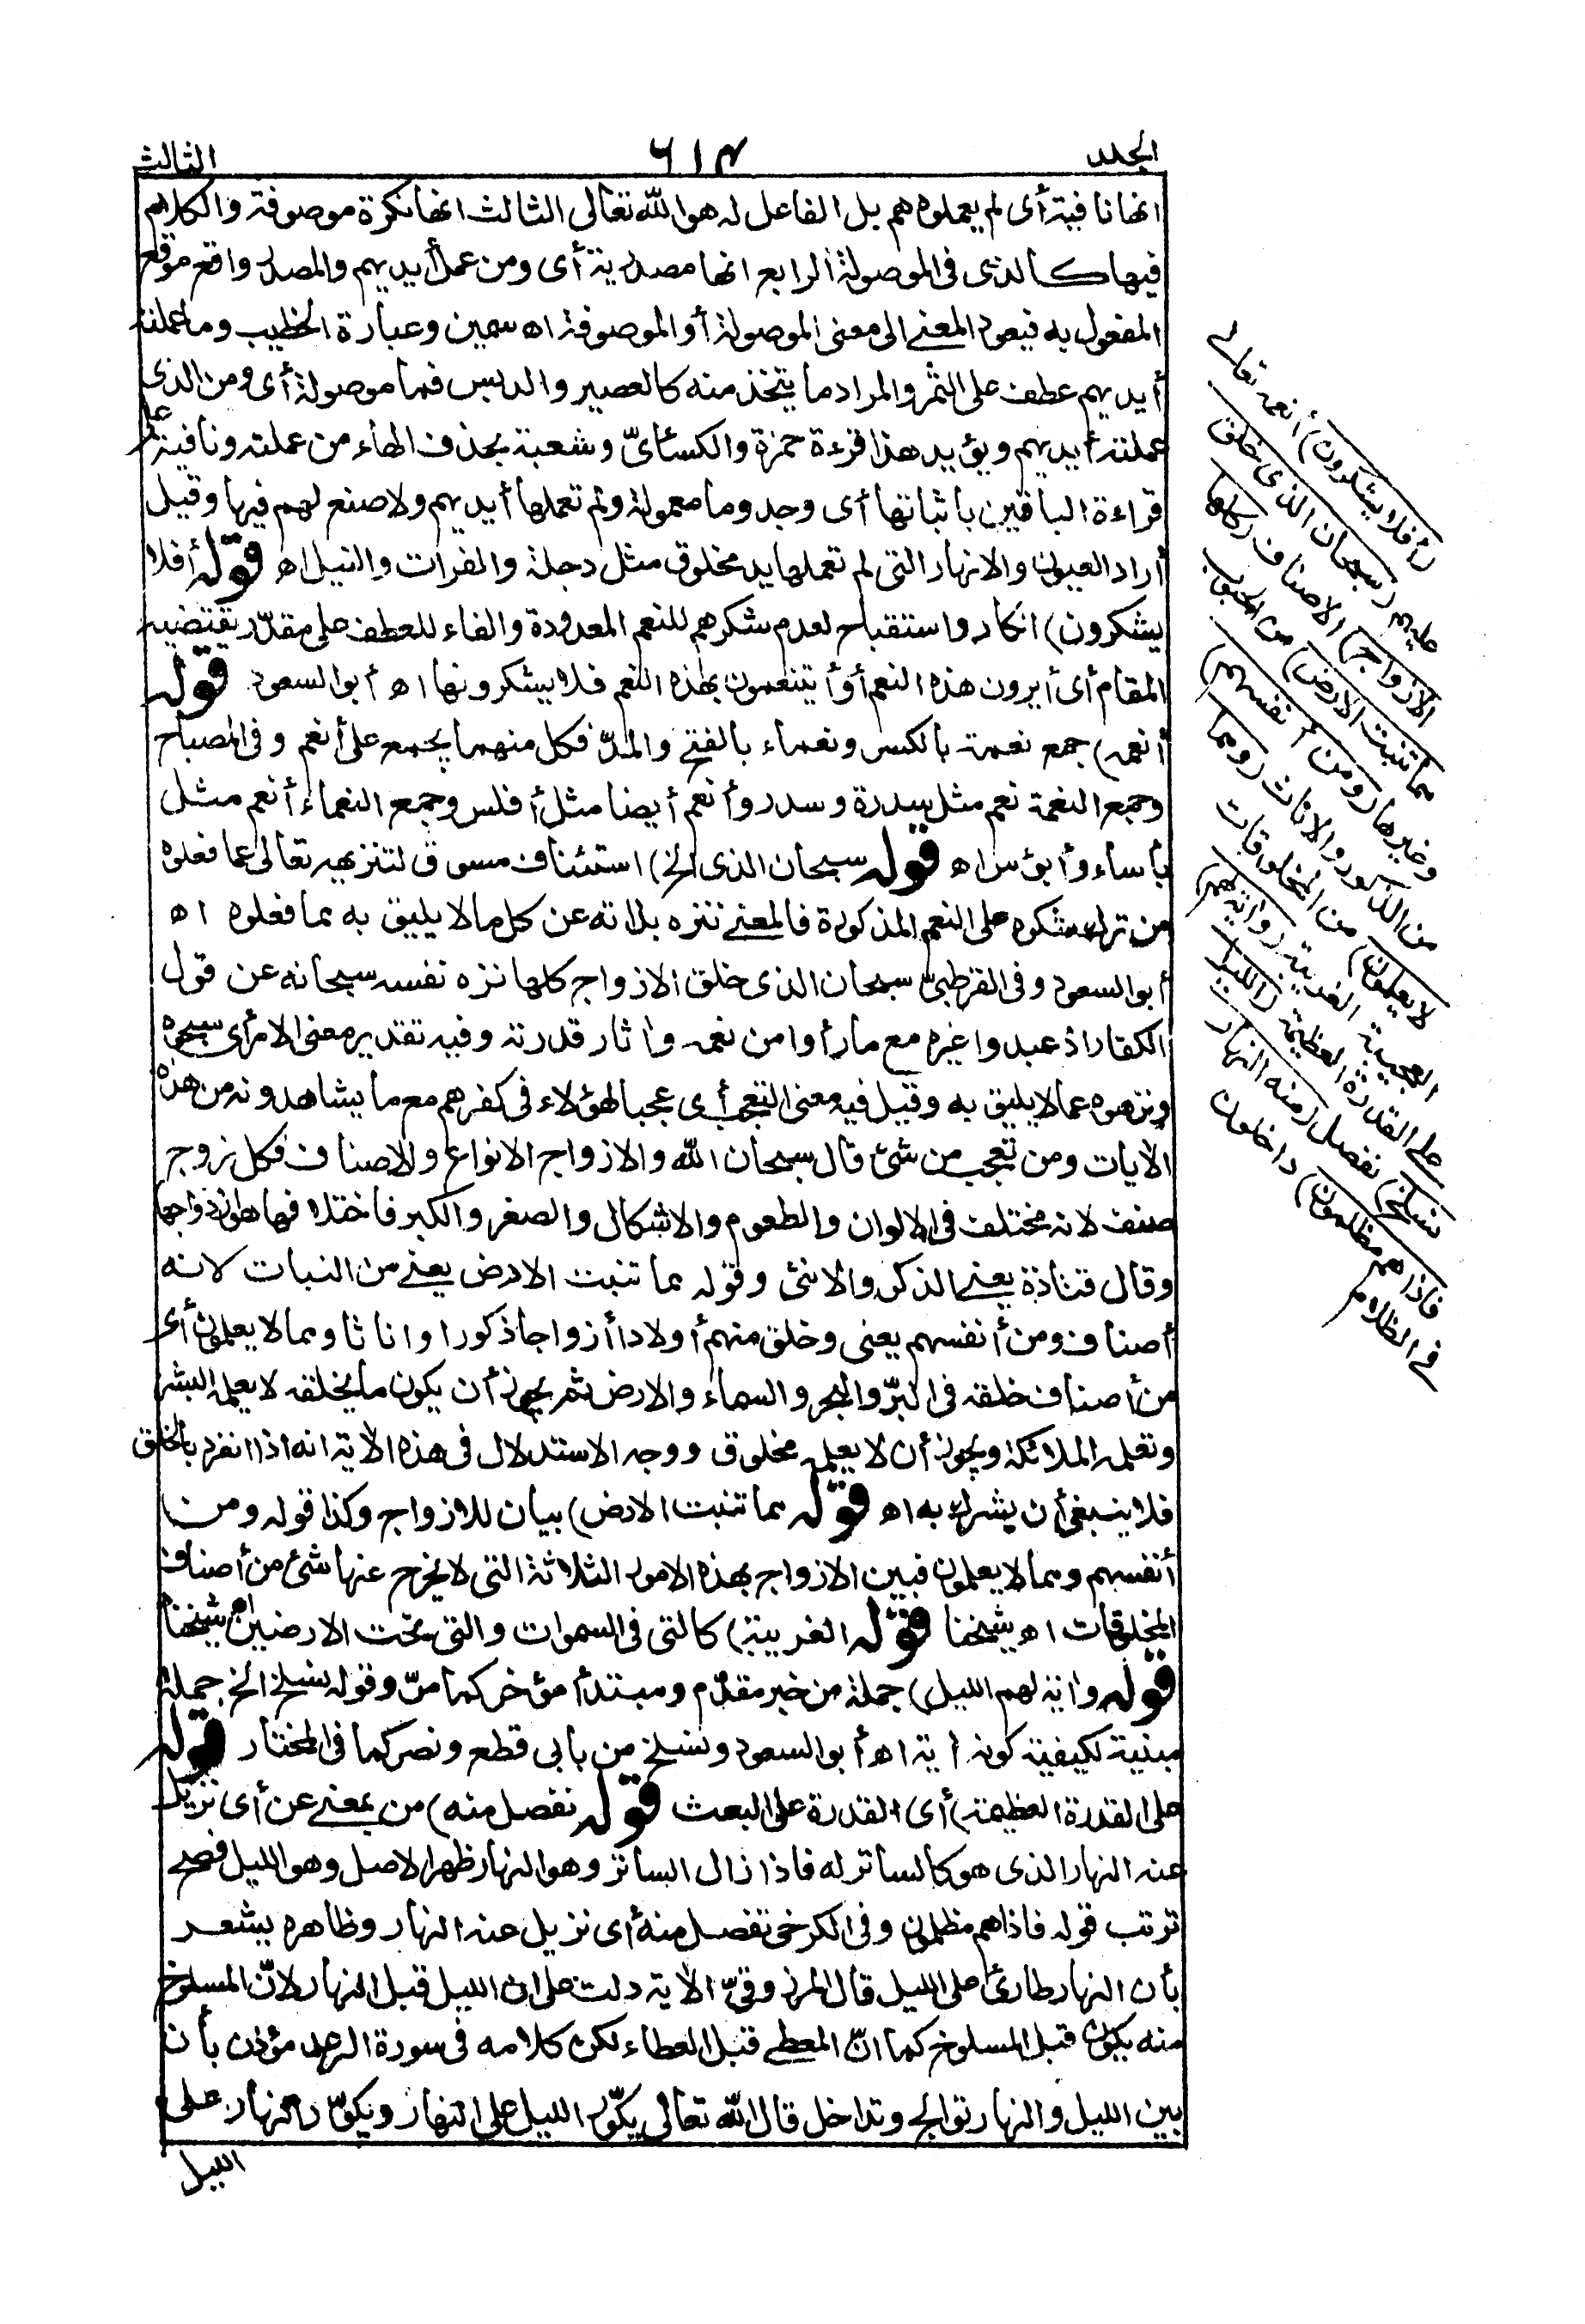 الجلد ٦١٣ الثالث
انها نافية أى لم يعملوه هم بل الفاعل له هو الله تعالى الثالث انها نكرة موصوفة والكلام
فيها كالذى فى الموصولة الرابع انها مصدرية أى ومن عمل أيديهم والمصدر واقع موقع
المفعول به فيعود المعنى الى معنى الموصولة أو الموصوفة اه سمين وعبارة الخطيب وما عملته
أيديهم عطف على الثمر والمراد ما يتخذ منه كالعصير والدبس فما موصولة أى ومن الذى
عملته أيديهم ويؤيد هذا قرءة حمزة والكسائىّ وشعبة بحذف الهاء من عملته ونافية على
قراءة الباقين باثباتها أى وجدوما معمولة ولم تعملها أيديهم ولا صنع لهم فيها وقيل
أراد العيون والانهار التى لم تعملها يد مخلوق مثل دجلة والفرات والنيل اه قوله أفلا
يشكرون) انكار واستقباح لعدم شكرهم للنعم المعدودة والفاء للعطف على مقدّر يقتضيه
المقام أى أيرون هذه النعم أو أيتنعمون بهذه النعم فلا يشكرونها اه أبو السعود قوله
أنعمه) جمع نعمة بالكسر ونعماء بالفتح والمدّ فكل منهما يجمع على أنعم وفى المصباح
وجمع النعمة نعم مثل سدرة وسدر وأنعم أيضا مثل أفلس وجمع النعماء أنعم مثل
بأساء وأبؤس اه قوله سبحان الذى الخ) استئناف مسوق لتنزيهه تعالى عما فعلوه
من ترك شكره على النعم المذكورة فالمعنى تنزه بذاته عن كل ما لا يليق به مما فعلوه اه
أبو السعود وفى القرطبىّ سبحان الذى خلق الازواج كلها نزه نفسه سبحانه عن قول
الكفار اذ عبدوا غيره مع ما رأوا من نعمه واثار قدرته وفيه تقدير معنى الامر أى سبحوه
ونزهوه عما لا يليق به وقيل فيه معنى التعجب أى عجبا لهؤلاء فى كفرهم مع ما يشاهدونه من هذه
الآيات ومن تعجب من شئ قال سبحان الله والازواج الانواع والاصناف فكل زوج
صنف لانه مختلف فى الالوان والطعوم والاشكال والصغر والكبر فاختلافها هو ازدواجها
وقال قتادة يعنى الذكر والانثى وقوله مما تنبت الارض يعنى من النبات لانه
أصناف ومن أنفسهم يعنى وخلق منهم أولادا أزواجا ذكورا واناثا ومما لا يعلمون أى
من أصناف خلقه فى البرّ والبحر والسماء والارض ثم يجوز أن يكون ما يخلقه لا يعلمه البشر
وتعلمه الملائكة ويجوز أن لا يعلمه مخلوق ووجه الاستدلال فى هذه الآية انه اذا انفرد بالخلق
فلا ينبغى أن يشرك به اه قوله مما تنبت الارض) بيان للازواج وكذا قوله ومن
أنفسهم ومما لا يعلمون فبين الازواج بهذه الامور الثلاثة التى لا يخرج عنها شئ من أصناف
المخلوقات اه شيخنا قوله الغريبة) كالتى فى السموات والتى تحت الارضين اه شيخنا
قوله واٰية لهم الليل) جملة من خبر مقدّم ومبتدأ مؤخر كما مرّ وقوله نسلخ الخ جملة
مبنية لكيفية كونه اٰية اه أبو السعود ونسلخ من بابى قطع ونصر كما فى المختار قوله
على القدرة العظيمة) أى القدرة على البعث قوله نفصل منه) من بمعنى عن أى نزيل
عنه النهار الذى هو كالساتر له فاذا زال الساتر وهو النهار ظهر الاصل وهو الليل فصح
ترتب قوله فاذا هم مظلمون وفى الكرخى نفصل منه أى نزيل عنه النهار وظاهره يشعر
بأن النهار طارئ على الليل قال المرزوقىّ الآية دلت على ان الليل قبل النهار لانّ المسلوخ
منه يكون قبل المسلوخ كما انّ المعطى قبل العطاء لكن كلامه فى سورة الرعد مؤذن بأن
بين الليل والنهار توالج وتداخل قال الله تعالى يكوّر الليل على النهار ويكوّر النهار على
الليل
(أفلا يشكرون) أنعمه تعالى
عليهم (سبحان الذى خلق
الازواج) الاصناف (كلها
مما تنبت الارض) من الحبوب
وغيرها (ومن أنفسهم)
من الذكور والاناث (ومما
لا يعلمون) من المخلوقات
العجيبة الغريبة (واٰية لهم)
على القدرة العظيمة (الليل
نسلخ) نفصل (منه النهار
فاذا هم مظلمون) داخلون
فى الظلام